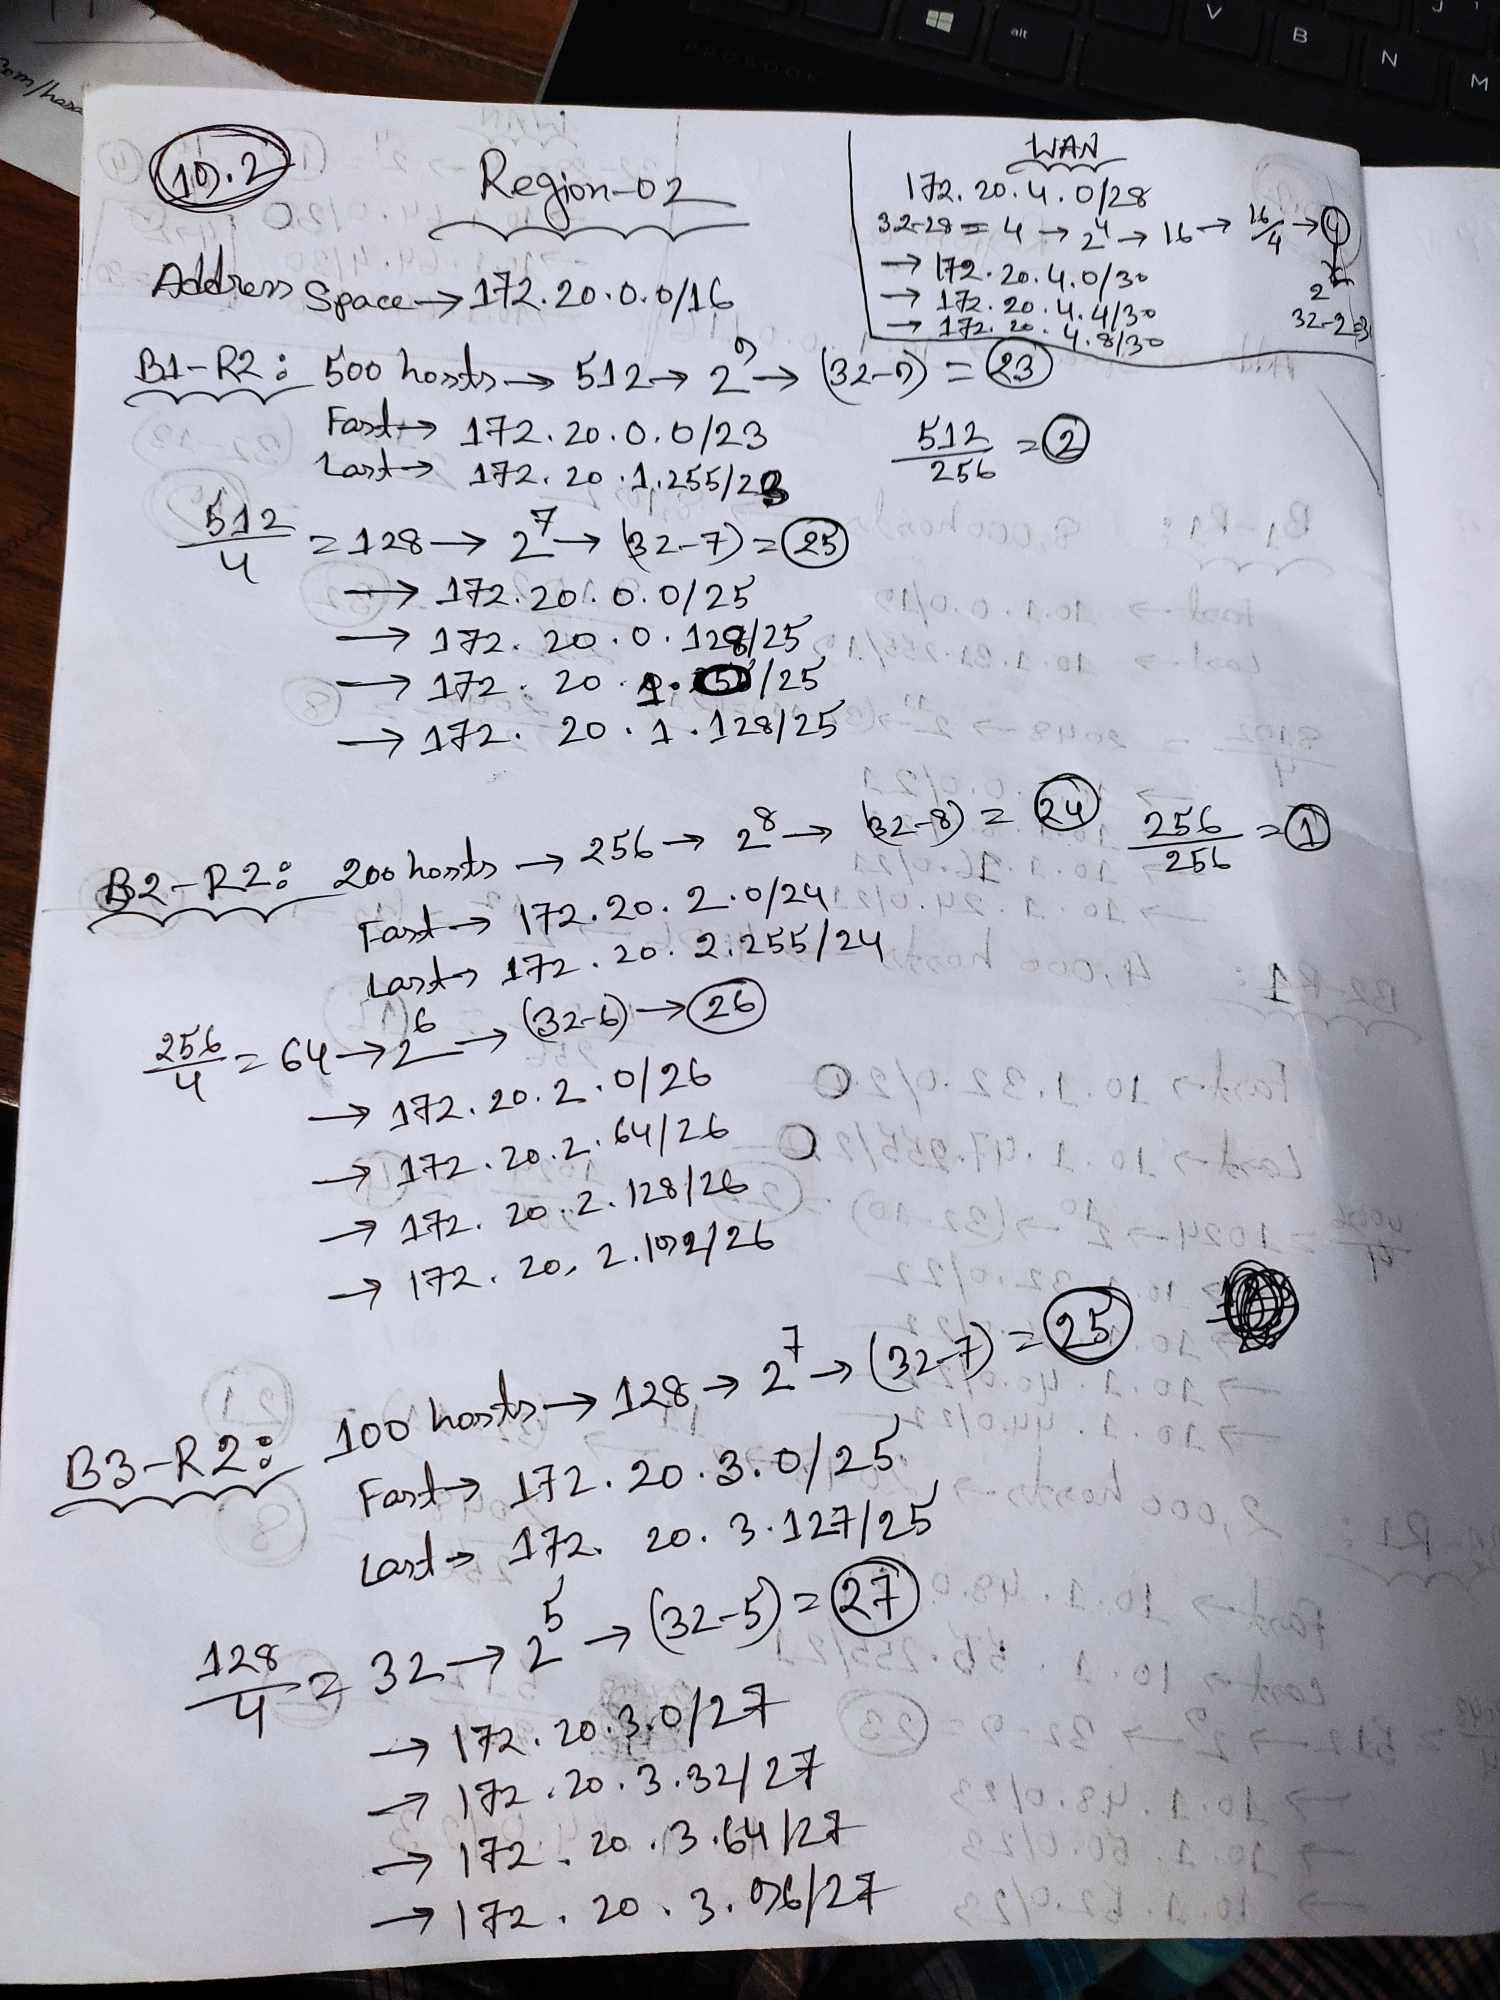 10.2
Region-02
WAN
172.20.4.0/28
32-28 = 4 → 2^4 → 16 → 16/4 → 4
→ 172.20.4.0/30
→ 172.20.4.4/30
→ 172.20.4.8/30
2^2
32-2=3
Address Space → 172.20.0.0/16
B1-R2: 500 hosts → 512 → 2^9 → (32-9) = 23
Fast → 172.20.0.0/23
512/256 = 2
Last → 172.20.1.255/23
512/4 = 128 → 2^7 → (32-7) = 25
→ 172.20.0.0/25
→ 172.20.0.128/25
→ 172.20.1.0/25
→ 172.20.1.128/25
B2-R2: 200 hosts → 256 → 2^8 → (32-8) = 24
256/256 = 1
Fast → 172.20.2.0/24
Last → 172.20.2.255/24
256/4 = 64 → 2^6 → (32-6) → 26
→ 172.20.2.0/26
→ 172.20.2.64/26
→ 172.20.2.128/26
→ 172.20.2.192/26
B3-R2: 100 hosts → 128 → 2^7 → (32-7) = 25
Fast → 172.20.3.0/25
Last → 172.20.3.127/25
128/4 = 32 → 2^5 → (32-5) = 27
→ 172.20.3.0/27
→ 172.20.3.32/27
→ 172.20.3.64/27
→ 172.20.3.96/27
alt
V
B
N
M
J
PROBOOK